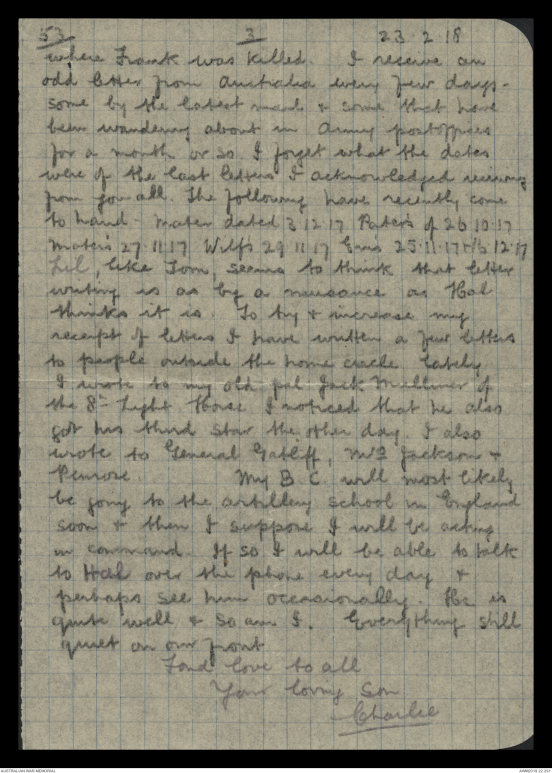 53 3 23.2.18
where Frank was killed. I receive an
odd letter from Australia every few days -
some by the latest mail & some that have
been wandering about in Army post offices
for a month or so. I forget what the dates
were of the last letters I acknowledged receiving
from you all. The following have recently come
to hand - Mater dated 3.12.17 Pater's of 26.10.17
Mater's 27.11.17 Wilf's 29.11.17 25.11.17 12.17
Lil, like Tom, seems to think that letter
writing is as big a nuisance as Hal
thinks it is. To try & increase my
receipt of letters I have written a few letters
to people outside the home circle lately.
I wrote to my old pal Jack of
the 8th Light Horse I noticed that he also
got his third star the other day. I also
wrote to General Gatliff, Mrs Jackson &
Penrose. My B C. will most likely
be going to the artillery school in England
soon & then I suppose I will be acting
in command. If so I will be able to talk
to Hal over the phone every day &
perhaps see him occasionally. He is
quite well & so am I. Everything still
quiet on our front
Fond love to all
Your loving Son
Charlie
AUSTRALIAN WAR MEMORIAL